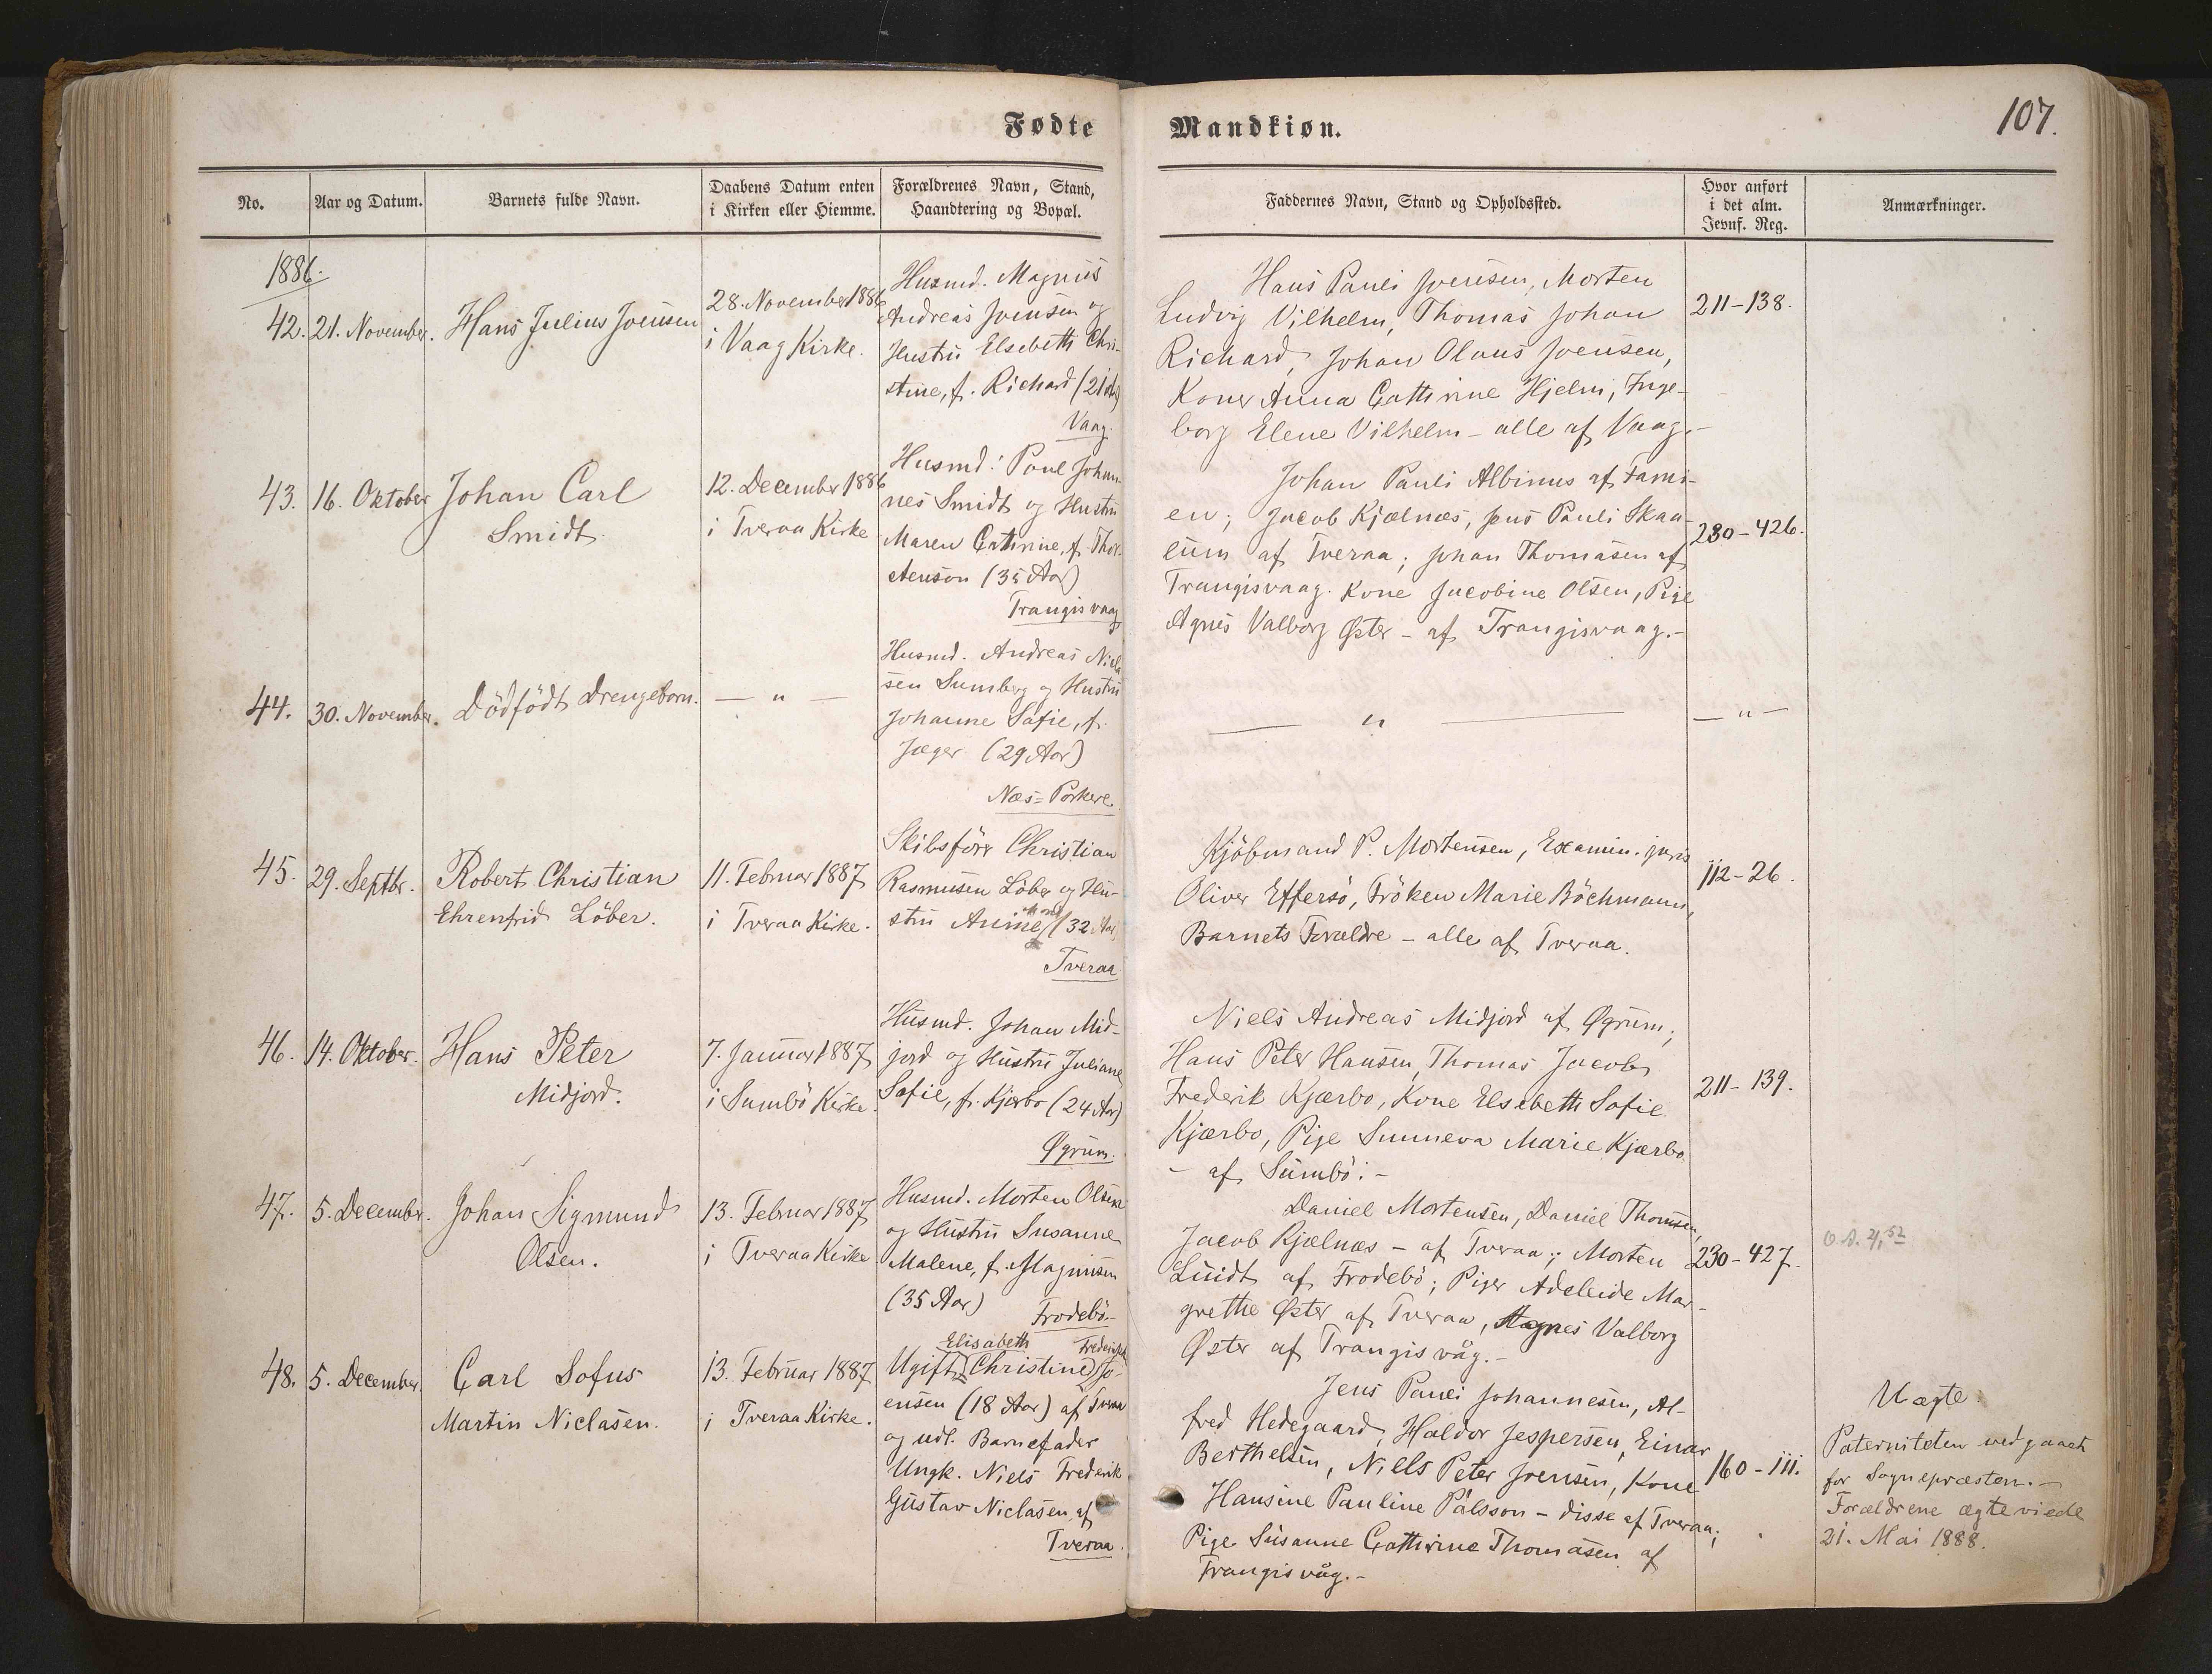 Fødte Mandkiøn.
107.
No.
Aar og Datum.
Barnets fulde Navn.
Daabens Datum enten
i Kirken eller Hiemme.
Forældrenes Navn, Stand,
Haandtering og Bopæl.
Faddernes Navn, Stand og Opholdssted.
Hvor anført
i det alm.
Jevnf. Reg.
Anmærkninger.
1886.
42.
21. November.
Hans Julius Joensen
28. November 1886
i Vaag Kirke.
Husmd. Magnus
Andreas Joensen og
Hustru Elsebeth Chri-
stine, f. Richard (21 Aar)
Vaag.
Hans Pauli Joensen, Morten
Ludvig Vilhelm, Thomas Johan
Richard, Johan Olaus Joensen,
Koner Anna Cathrine Hjelm, Inge-
borg Elene Vilhelm - alle af Vaag.-
211-138.
43.
16. Oktober
Johan Carl
Smidt.
12. December 1886
i Tveraa Kirke
Husmd: Poul Johan-
nes Smidt og Hustru
Maren Cathrine, f. Thor-
stenson (35 Aar)
Trangisvaag
Johan Pauli Albinus af Fami-
en; Jacob Kjælnæs, Jens Pauli Skaa-
lum af Tveraa; Johan Thomasen af
Trangisvaag. Kone Jacobine Olsen, Pige
Agnes Valborg Øster - af Trangisvaag.-
230-426.
44.
30. November.
Dödfödt Drengebarn.
— " —
Husmd. Andreas Niela
sen Sumberg og Hustru
Johanne Sofie, f.
Jæger (29 Aar)
Næs=Porkere.
— " —
— " —
45.
29. Septbr.
Robert Christian
Ehrenfrid Löber.
11. Februar 1887
i Tveraa Kirke.
Skibsförer Christian
Rasmusen Löber og Hu-
stru Annine (32 Aar)
Tveraa
Kjöbmand P. Mortensen, Examin. juris
Oliver Effersö, Fröken Marie Böchmann,
Barnets Forældre - alle af Tveraa.
112-26.
46.
14. Oktober.
Hans Peter
Midjord.
7. Januar 1887
i Sumbö Kirke.
Husmd. Johan Mid-
jord og Hustru Juliane
Sofie, f. Kjærbo (24 Aar)
Øgrum.
Niels Andreas Midjord af Øgrum;
Hans Peter Hansen, Thomas Jacob
Frederik Kjærbo, Kone Elsebeth Sofie
Kjærbo, Pige Sunneva Marie Kjærbo
- af Sumbö.-
211-139.
47.
5. December.
Johan Sigmund
Olsen.
13. Februar 1887
i Tveraa Kirke
Husmd. Morten Olsen
og Hustru Susanne
Malene, f. Magnusen
(35 Aar)
Frodebö.-
Daniel Mortensen, Daniel Thomsen,
Jacob Kjælnæs - af Tveraa; Morten
Luidt af Frodebö; Piger Adeleide Mar-
grethe Øster af Tveraa, Agnes Valborg
Øster af Trangisvåg.-
230-427.
48.
5. December.
Carl Sofus
Martin Niclasen.
13. Februar 1887
i Tveraa Kirke.
Elisabeth Frederikke
Ugift Christine Jo-
ensen (18 Aar) af Tveraa
og udl. Barnefader
Ungk. Niels Frederik
Gustav Niclasen af
Tveraa.
Jens Pauli Johannesen, Al-
fred Hedegaard, Haldor Jespersen, Einar
Berthelsen, Niels Peter Joensen, Kone
Hansine Pauline Pålsson - disse af Tveraa;
Pige Susanne Cathrine Thomasen af
Trangisvåg.-
160-111.
Uægte.
Paterniteten vedgaaet
for Sognepræsten.-
Forældrene ægteviede
21. Mai 1888.